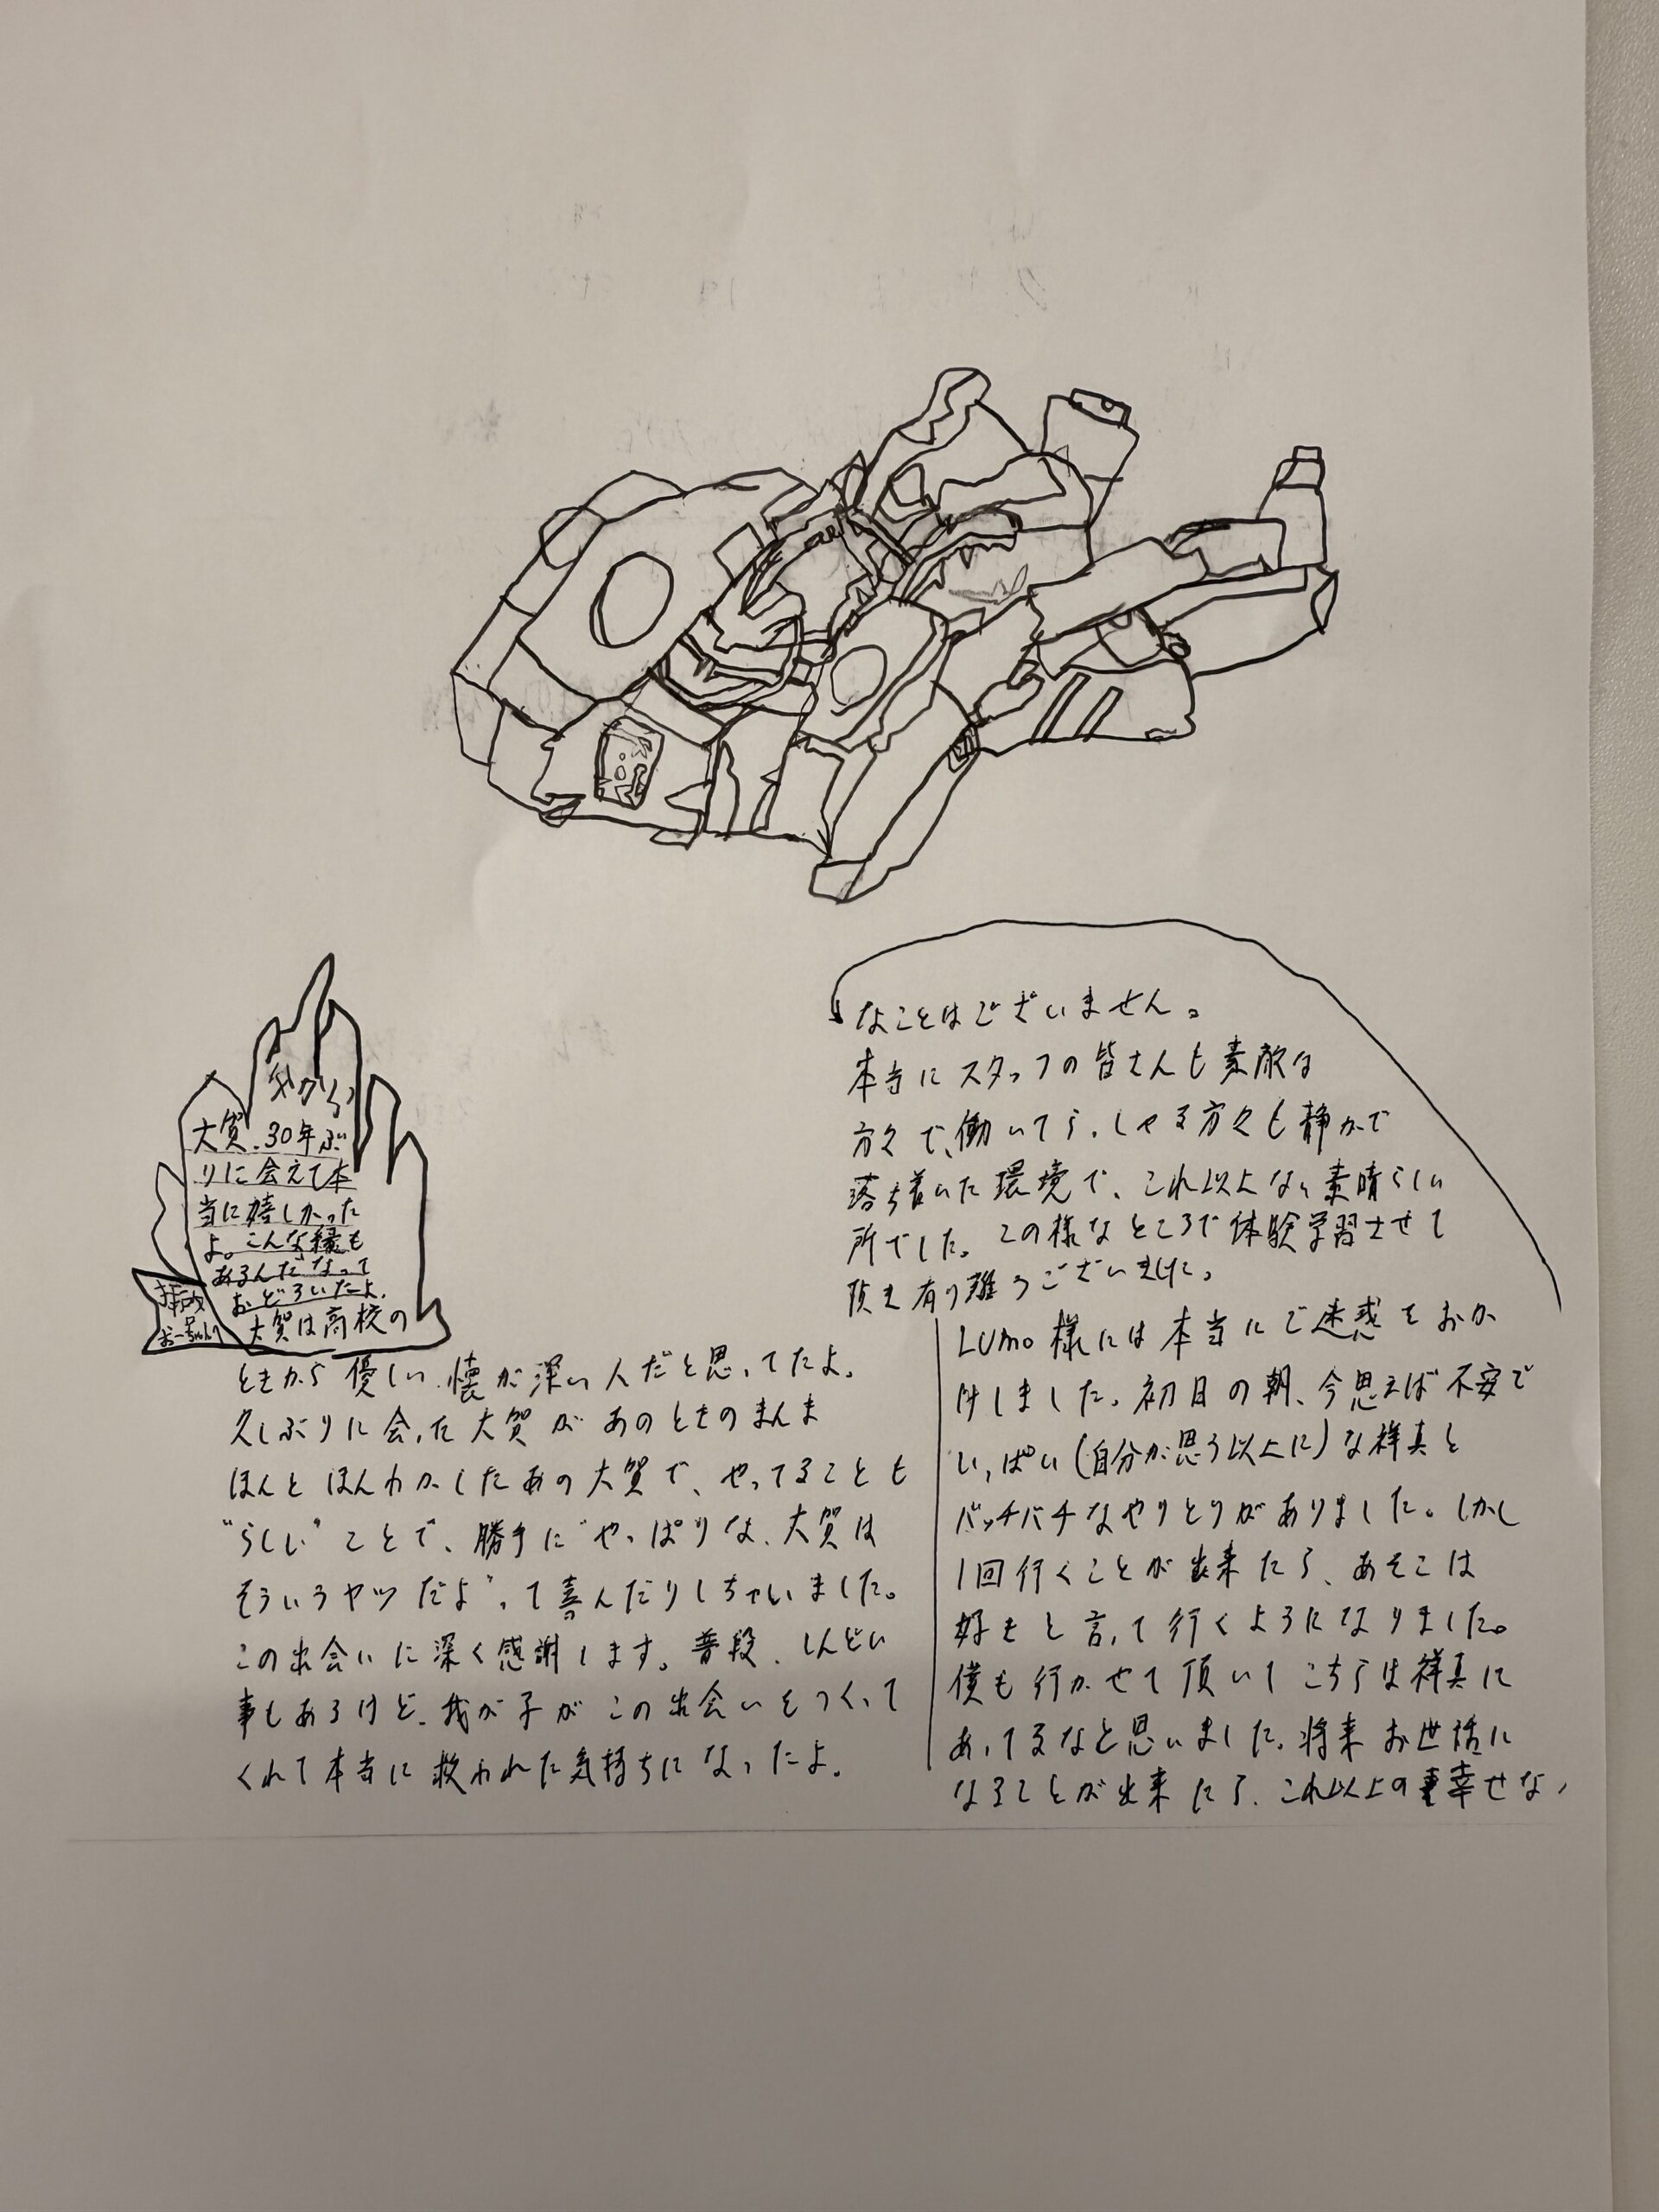 大賀、30年ぶ
りに会えて本
当に嬉しかった
よ。こんな縁も
あるんだなって
おどろいたよ。
大賀は高校の
ときから優しい、懐が深い人だと思ってたよ。
久しぶりに会った大賀があのときのまんま
ほんとほんわかしたあの大賀で、やってることも
"らしい"ことで、勝手に"やっぱりな、大賀は
そういうヤツだよ"って喜んだりしちゃいました。
この出会いに深く感謝します。普段、しんどい
事もあるけど、我が子がこの出会いをつくって
くれて本当に救われた気持ちになったよ。
LUMO様には本当にご迷惑をおか
けしました。初日の朝、今思えば不安で
いっぱい(自分が思う以上に)な祥真と
バッチバチなやりとりがありました。しかし
1回行くことが出来たら、あそこは
好きと言って行くようになりました。
僕も行かせて頂いてこちらは祥真に
あってるなと思いました。将来お世話に
なることが出来たら、これ以上の幸せな
なことはございません。
本当にスタッフの皆さんも素敵な
方々で、働いてらっしゃる方々も静かで
落ち着いた環境で、これ以上ない素晴らしい
所でした。この様なところで体験学習させて
頂き有り難うございました。